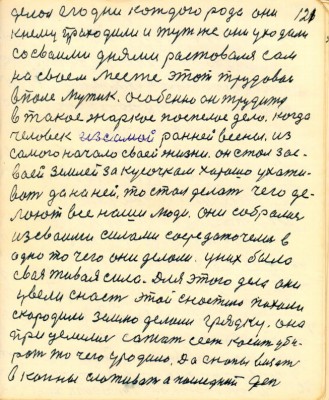 делоя агодни кождого рода они 126
кнему приходили и тутже они уходили
сосвоими днями растовался сам
на своем месте этот трудовои
в поле мужик. особенно он трудится
в такое жаркое поспелое дело. когда
человек из самой ранней весны. из
самого начало своей жизни. он стал за
своей землей за кусочкам харошо ухажи-
вот да на ней, то стал делат чего де-
лоют все наши люди. они собралис
из своими силами сосредоточены в
одно то чего они делоли. у них было
своя живая сила. Для этого дела они
звели снаст этой снастию пахали
скородили землю делоли грядку. она
при делилис сажат сеет косит уби-
рат то чего уродило. Да снопы вязат
в копны сложиват а последний